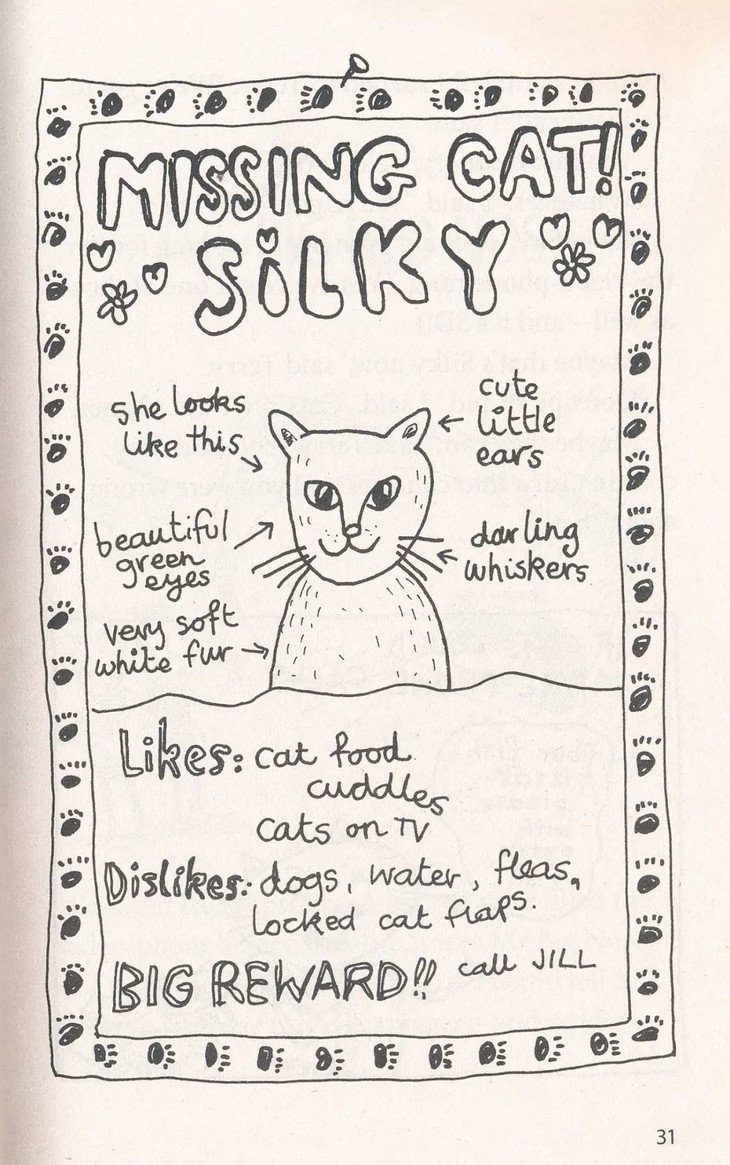 MISSING CAT!
SiLKY
she looks
like this
cute
little
ears
beautiful
green
eyes
darling
whiskers
very soft
white fur
Likes: cat food
cuddles
cats on TV
Dislikes: dogs, water, fleas,
locked cat flaps.
BIG REWARD!! call JILL
31